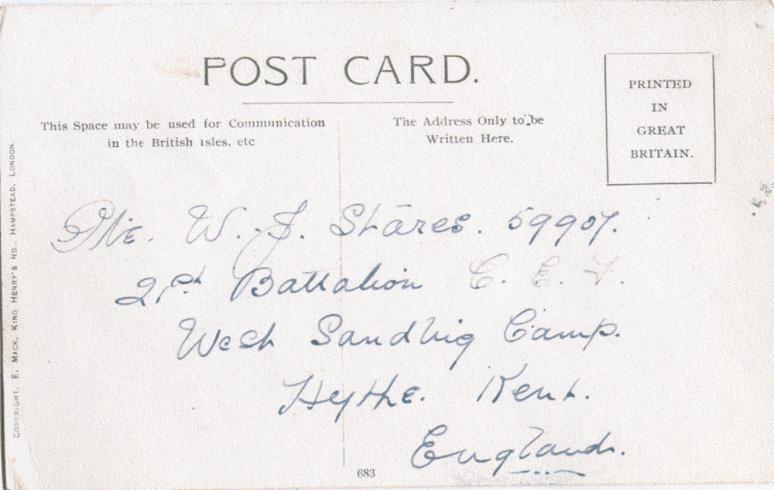 POST CARD.
This Space may be used for Communication
in the British Isles. etc
The Address Only to be
Written Here.
PRINTED
IN
GREAT
BRITAIN.
Pte. W. J. Stares. 59907.
21st Battalion C. E. F.
West Sandling Camp.
Hythe. Kent.
England.
683
COPYRIGHT. E. MACK, KING HENRY'S RD., HAMPSTEAD, LONDON.